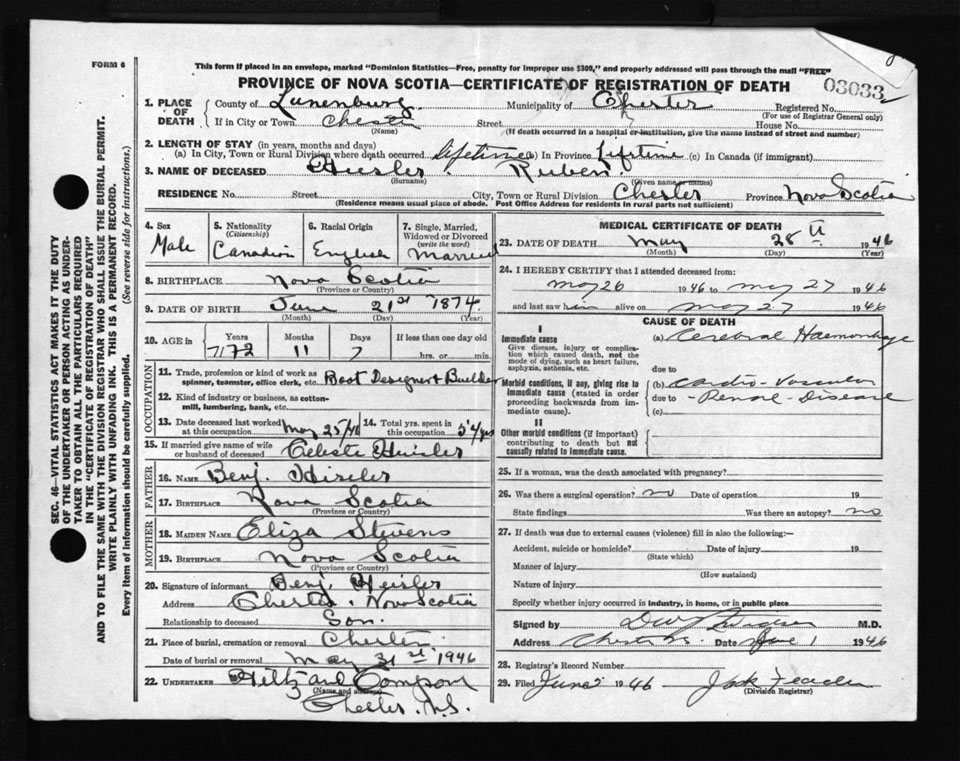 FORM 6
This form if placed in an envelope, marked "Dominion Statistics—Free, penalty for improper use $300," and properly addressed will pass through the mail "FREE"
PROVINCE OF NOVA SCOTIA—CERTIFICATE OF REGISTRATION OF DEATH
03033
1. PLACE OF DEATH County of Lunenburg Municipality of Chester Registered No.
(For use of Registrar General only)
If in City or Town Chester Street House No.
(Name) (If death occurred in a hospital or institution, give the name instead of street and number)
2. LENGTH OF STAY (in years, months and days)
(a) In City, Town or Rural Division where death occurred lifetime (b) In Province Lifetime (c) In Canada (if immigrant)
3. NAME OF DECEASED Heisler Ruben
(Surname) (Given name or names)
RESIDENCE No. Street City, Town or Rural Division Chester Province Nova Scotia
(Residence means usual place of abode. Post Office Address for residents in rural parts not sufficient)
4. Sex Male
5. Nationality (Citizenship) Canadian
6. Racial Origin English
7. Single, Married, Widowed or Divorced (write the word) Married
8. BIRTHPLACE Nova Scotia
(Province or Country)
9. DATE OF BIRTH June 21st 1874
(Month) (Day) (Year)
10. AGE in Years Months Days If less than one day old
71 11 7 hrs. or min.
OCCUPATION
11. Trade, profession or kind of work as spinner, teamster, office clerk, etc. Boat Designer & Builder
12. Kind of industry or business, as cotton-mill, lumbering, bank, etc.
13. Date deceased last worked at this occupation May 25/46
14. Total yrs. spent in this occupation 54 yrs
15. If married give name of wife or husband of deceased Celeste Heisler
FATHER
16. NAME Benj. Hisler
17. BIRTHPLACE Nova Scotia
(Province or Country)
MOTHER
18. MAIDEN NAME Eliza Stevens
19. BIRTHPLACE Nova Scotia
(Province or Country)
20. Signature of informant Benj Heisler
Address Chester. Nova Scotia
Relationship to deceased Son.
21. Place of burial, cremation or removal Chester
Date of burial or removal May 31st 1946
22. UNDERTAKER Hiltz and Compson
(Name and address)
Chester. N.S.
MEDICAL CERTIFICATE OF DEATH
23. DATE OF DEATH May 28th 1946
(Month) (Day) (Year)
24. I HEREBY CERTIFY that I attended deceased from:
May 26 1946 to May 27 1946
and last saw him alive on May 27 1946
CAUSE OF DEATH
I
Immediate cause (a) Cerebral Haemorrhage
Give disease, injury or complication which caused death, not the mode of dying, such as heart failure, asphyxia, asthenia, etc.
due to
Morbid conditions, if any, giving rise to immediate cause (stated in order proceeding backwards from immediate cause). (b) Cardio-Vascular
due to -Renal-Disease
(c)
II
Other morbid conditions (if important) contributing to death but not causally related to immediate cause.
25. If a woman, was the death associated with pregnancy?
26. Was there a surgical operation? no Date of operation 19
State findings Was there an autopsy? no
27. If death was due to external causes (violence) fill in also the following:—
Accident, suicide or homicide? Date of injury 19
(State which)
Manner of injury
(How sustained)
Nature of injury
Specify whether injury occurred in industry, in home, or in public place
Signed by M.D.
Address Chester N.S. Date June 1 1946
28. Registrar's Record Number
29. Filed June 1946
(Division Registrar)
SEC. 46—VITAL STATISTICS ACT MAKES IT THE DUTY
OF THE UNDERTAKER OR PERSON ACTING AS UNDER-
TAKER TO OBTAIN ALL THE PARTICULARS REQUIRED
IN THE "CERTIFICATE OF REGISTRATION OF DEATH"
AND TO FILE THE SAME WITH THE DIVISION REGISTRAR WHO SHALL ISSUE THE BURIAL PERMIT.
WRITE PLAINLY WITH UNFADING INK. THIS IS A PERMANENT RECORD.
Every item of information should be carefully supplied. (See reverse side for instructions.)